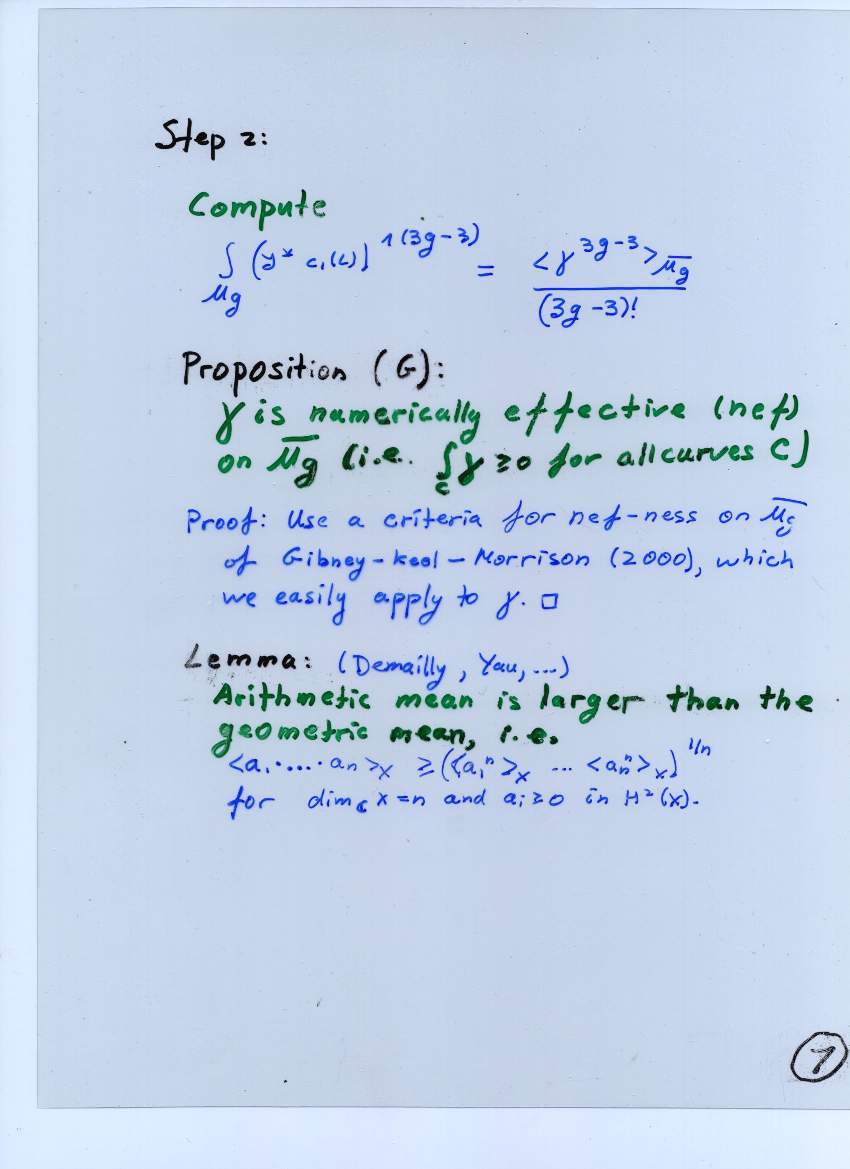 Step 2:
Compute
∫_{Mg} (y* c₁(L))^{∧(3g-3)} = <γ^{3g-3}>_{\overline{Mg}} / (3g-3)!
Proposition (G):
γ is numerically effective (nef)
on \overline{Mg} (i.e. ∫_C γ ≥ 0 for all curves C)
Proof: Use a criteria for nef-ness on \overline{Mg}
of Gibney-Keel-Morrison (2000), which
we easily apply to γ. □
Lemma: (Demailly, Yau, ...)
Arithmetic mean is larger than the
geometric mean, i.e.
<a₁·....·aₙ>_X ≥ (<a₁ⁿ>_X ... <aₙⁿ>_X)^{1/n}
for dim_C X = n and aᵢ ≥ 0 in H²(X).
7